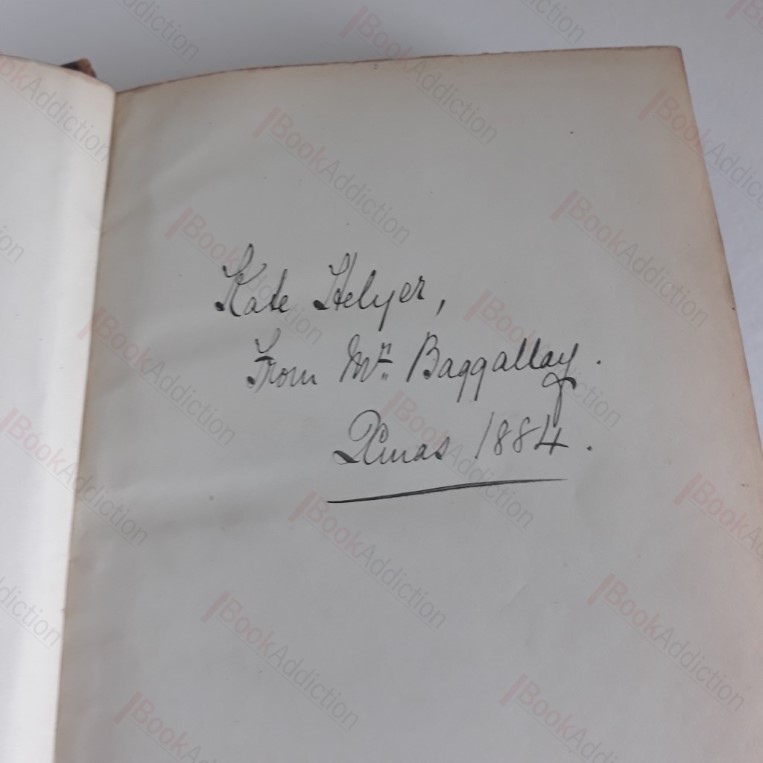 Kate Helyer,
From Mr. Baggallay.
Xmas 1884.